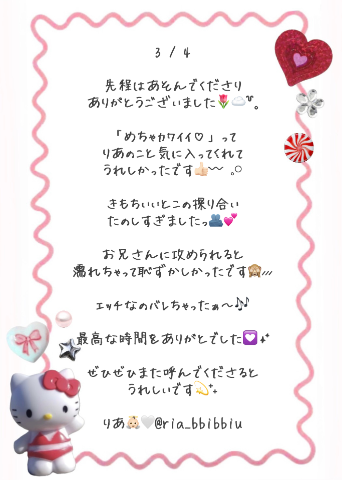 3 / 4
先程はあそんでくださり
ありがとうございました🌷☁️ꕤ。
「めちゃカワイイ♡」って
りあのこと気に入ってくれて
うれしかったです👍🏻〰︎ 𓈒𓏸
きもちいいとこの探り合い
たのしすぎましたっ👥💕
お兄さんに攻められると
濡れちゃって恥ずかしかったです🙈///
エッチなのバレちゃったぁ〜🎶
最高な時間をありがとでした💟✨
ぜひぜひまた呼んでくださると
うれしいです💫
りあ👼🏻🤍@ria_bbibbiu